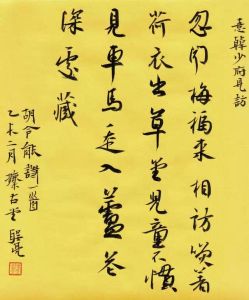 喜韓少府見訪
忽聞梅福來相訪笑著
荷衣出草堂兒童不慣
見車馬走入蘆花
深處藏
胡令能詩一首
乙未二月